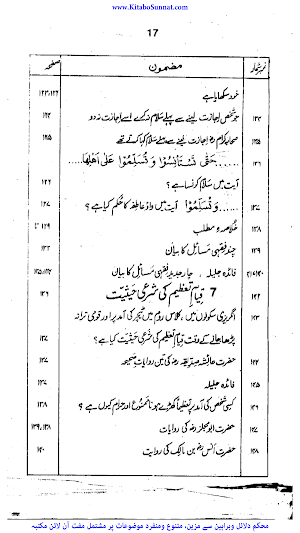 www.KitaboSunnat.com
17
نمبر شمار مضمون صفحہ
خود سکھایا ہے ۱۲۳،۱۲۴
۱۳۴ جو شخص اجازت لینے سے پہلے سلام نہ کرے اسے اجازت نہ دو ۱۲۴
۱۳۵ صحابہ کرام اجازت لینے سے پہلے سلام کہا کرتے تھے ۱۲۵
۱۳۶ ......حَتّٰی تَسْتَاْنِسُوْا وَ تُسَلِّمُوْا عَلٰی اَهْلِهَا....
آیت میں سلام کونسا ہے؟ ۱۲۶
۱۳۷ ......وَ تُسَلِّمُوْا آیت میں واؤ عاطفہ کا حکم کیا ہے؟ ۱۲۷
۱۳۸ خلاصہ مطلب
۱۳۹ چند فقہی مسائل کا بیان
فائدہ جلیلہ، چار جدید فقہی مسائل کا بیان
۱۴۲ 7 قیام تعظیمی کی شرعی حیثیت ۱۳۶
۱۴۳ انگریزی سکولوں میں، کلاس روم میں ٹیچر کی آمد پر اور قومی ترانہ
پڑھا جانے کے وقت قیام تعظیمی کی شرعی حیثیت کیا ہے؟ ۱۳۷
۱۴۴ حضرت عائشہ صدیقہ کی تین روایات صحیحہ ۱۳۷
۱۴۵ فائدہ جلیلہ ۱۳۷
۱۴۶ کسی شخص کی آمد پر تعظیماً کھڑے ہونا ممنوع اور حرام کیوں ہے؟ ۱۳۸
۱۴۷ حضرت ابو مجلز کی روایات ۱۳۸،۱۳۹
۱۴۸ حضرت انس بن مالک کی روایت ۱۴۰
محکم دلائل وبراہین سے مزین، متنوع ومنفرد موضوعات پر مشتمل مفت آن لائن مکتبہ
www.KitaboSunnat.com